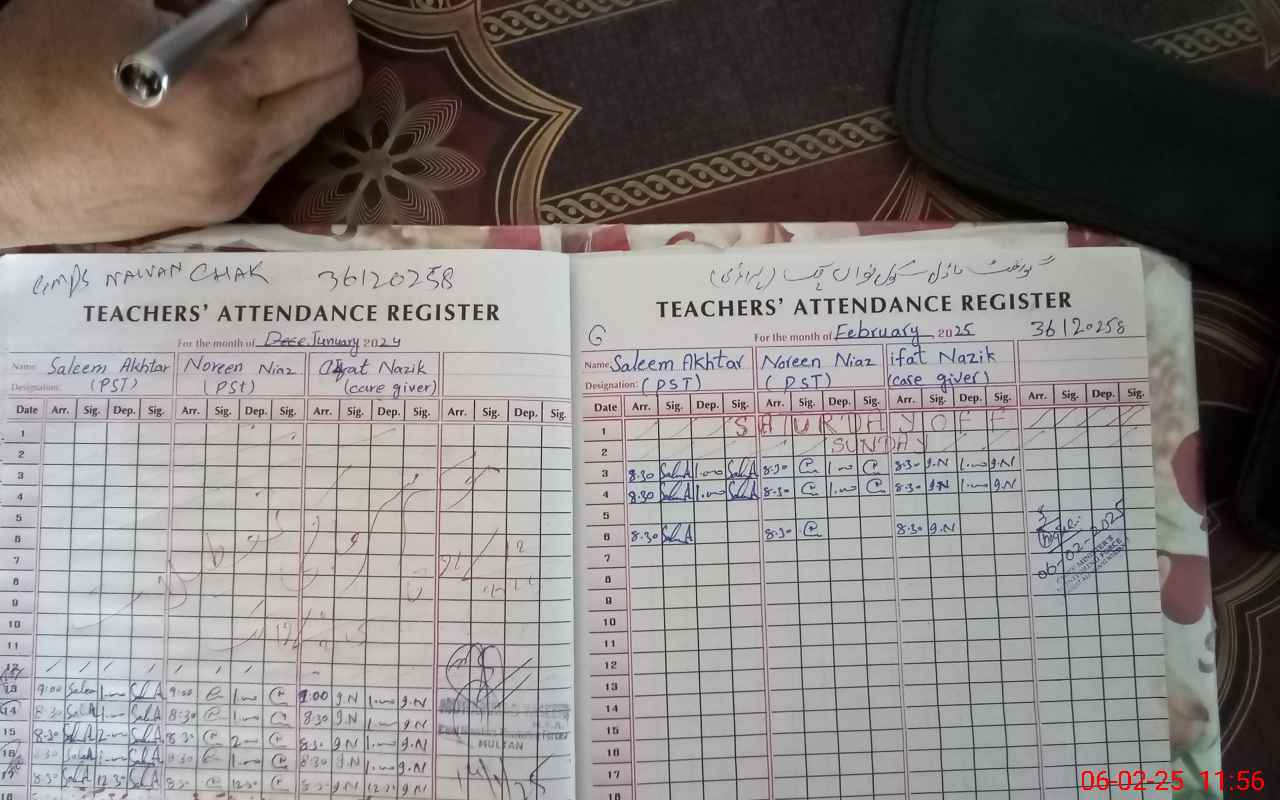 GMPS NAWAN CHAK 36120258
TEACHERS' ATTENDANCE REGISTER
For the month of January 2024
Name: Saleem Akhtar Noreen Niaz Ifat Nazik
Designation: (PST) (PST) (care giver)
Date Arr. Sig. Dep. Sig. Arr. Sig. Dep. Sig. Arr. Sig. Dep. Sig. Arr. Sig. Dep. Sig.
1
2
3
4
5
6
7
8
9
10
11
12
13 9:00 Saleem 1.00 Sal.A 9:00 1.00 9:00 g.N 1.00 g.N
14 8:30 Sal.A 1.00 Sal.A 8:30 1.00 8:30 g.N 1.00 g.N
15 8:30 Sal.A 2.00 Sal.A 8:30 2.00 8:30 g.N 1.00 g.N
MULTAN
16 8:30 Sal.A 1.00 Sal.A 8:30 1.00 8:30 g.N 1.00 g.N
17 8:30 Sal.A 12.30 Sal.A 8:30 12.30 8:30 g.N 12.30 g.N
18
گورنمنٹ ماڈل سکول نواں چک (پرائمری)
TEACHERS' ATTENDANCE REGISTER
G For the month of February 2025 36120258
Name: Saleem Akhtar Noreen Niaz ifat Nazik
Designation: (PST) (PST) (care giver)
Date Arr. Sig. Dep. Sig. Arr. Sig. Dep. Sig. Arr. Sig. Dep. Sig. Arr. Sig. Dep. Sig.
1 SATURDAY OFF
2 SUNDAY
3 8:30 Sal.A 1.00 Sal.A 8:30 1.00 8:30 g.N 1.00 g.N
4 8:30 Sal.A 1.00 Sal.A 8:30 1.00 8:30 g.N 1.00 g.N
5
6 8:30 Sal.A 8:30 8:30 g.N
06-02-2025
CHIEF MINISTER'S
7
8
9
10
11
12
13
14
15
16
17
18
06-02-25 11:56